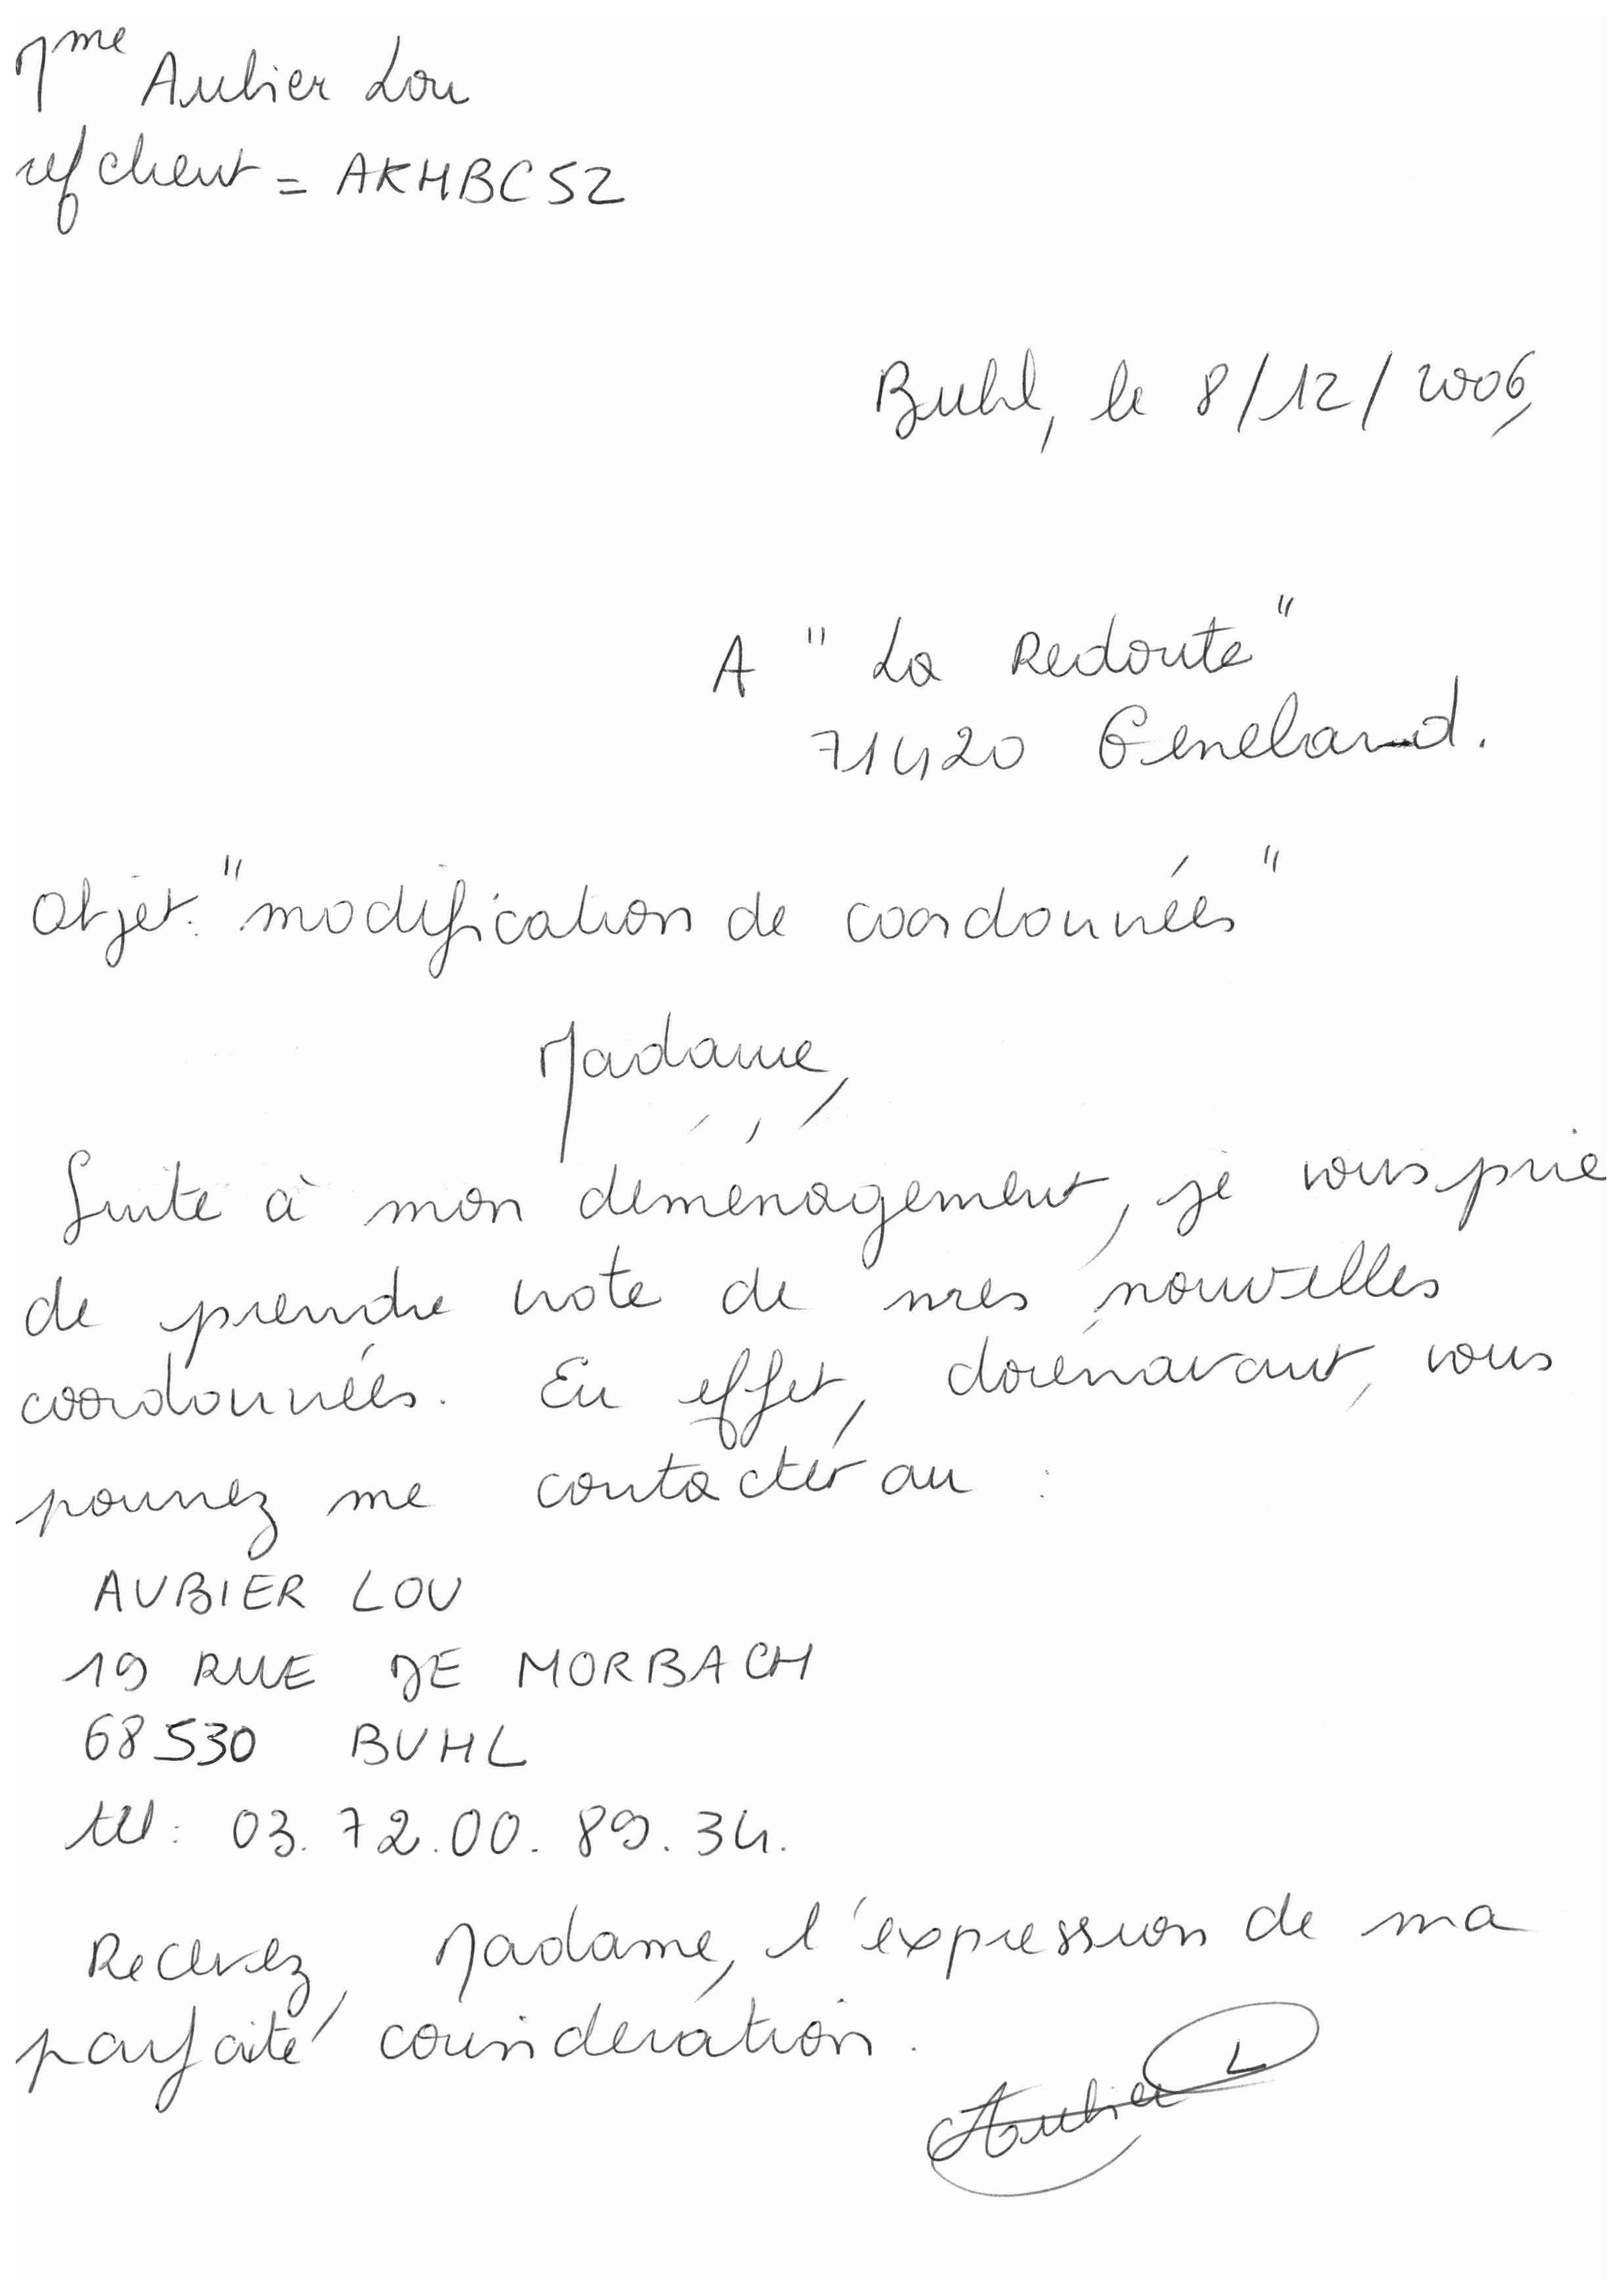 Mme Aubier Lou
ref client = AKHBC52
Buhl, le 8/12/2006,
A "La Redoute"
71420 Genelard.
Objet: "modification de coordonnées"
Madame,
Suite à mon déménagement, je vous prie
de prendre note de mes nouvelles
coordonnées. En effet, dorénavant, vous
pourrez me contacter au :
AUBIER LOU
19 RUE DE MORBACH
68530 BUHL
tél : 03.72.00.89.34.
Recevez, Madame, l'expression de ma
parfaite considération.
Aubier L